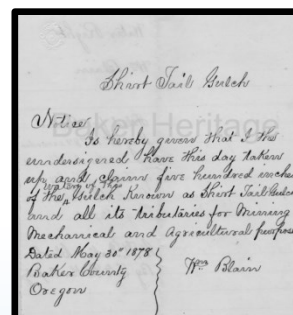 Shirt Tail Gulch
Notice
Baker Heritage
Is hereby given that I the
undersigned have this day taken
up and claim five hundred inches
water of this
of the Gulch Known as Shirt Tail Gulch
and all its tributaries for Mining
Mechanical and Agricultural purpose
Dated May 30th 1878
Baker County
Oregon
Wm Blain